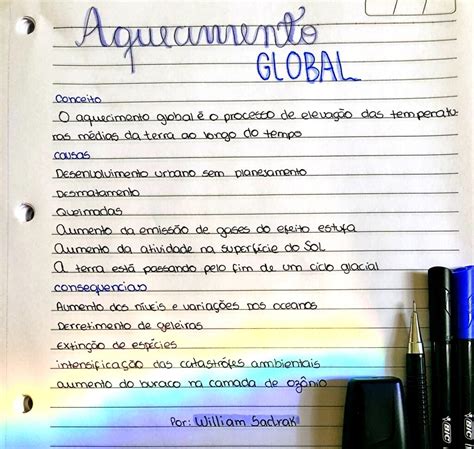 Aquecimento
GLOBAL
Conceito
O aquecimento global é o processo de elevação das temperatu-
ras médias da terra ao longo do tempo
causas
Desenvolvimento urbano sem planejamento
Desmatamento
Queimadas
Aumento da emissão de gases do efeito estufa
Aumento da atividade na superfície do Sol
A terra está passando pelo fim de um ciclo glacial
consequencias
Aumento dos níveis e variações nos oceanos
Derretimento de geleiras
extinção de espécies
intensificação das catastrófes ambientais
aumento do buraco na camada de ozônio
Por: William Sadrak
BIC
BIC